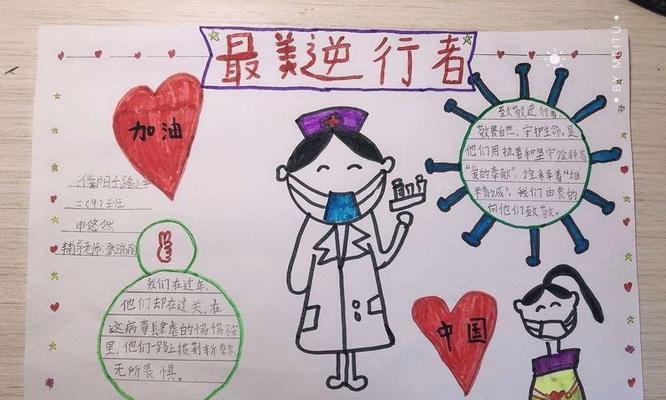 最美逆行者
BY MEITU
加油
濮阳子路小学
二(9)班
申悠然
辅导老师:张瑞丽
致敬逆行者
敬畏自然,守护生命,是
他们用执着和坚守诠释着
"爱的奉献",诠释着"雄
我们由衷的
向他们致敬。
我们在过年,
他们却在过关,在
这病毒肆虐的
里,他们一路上披荆斩棘
无所畏惧。
中国